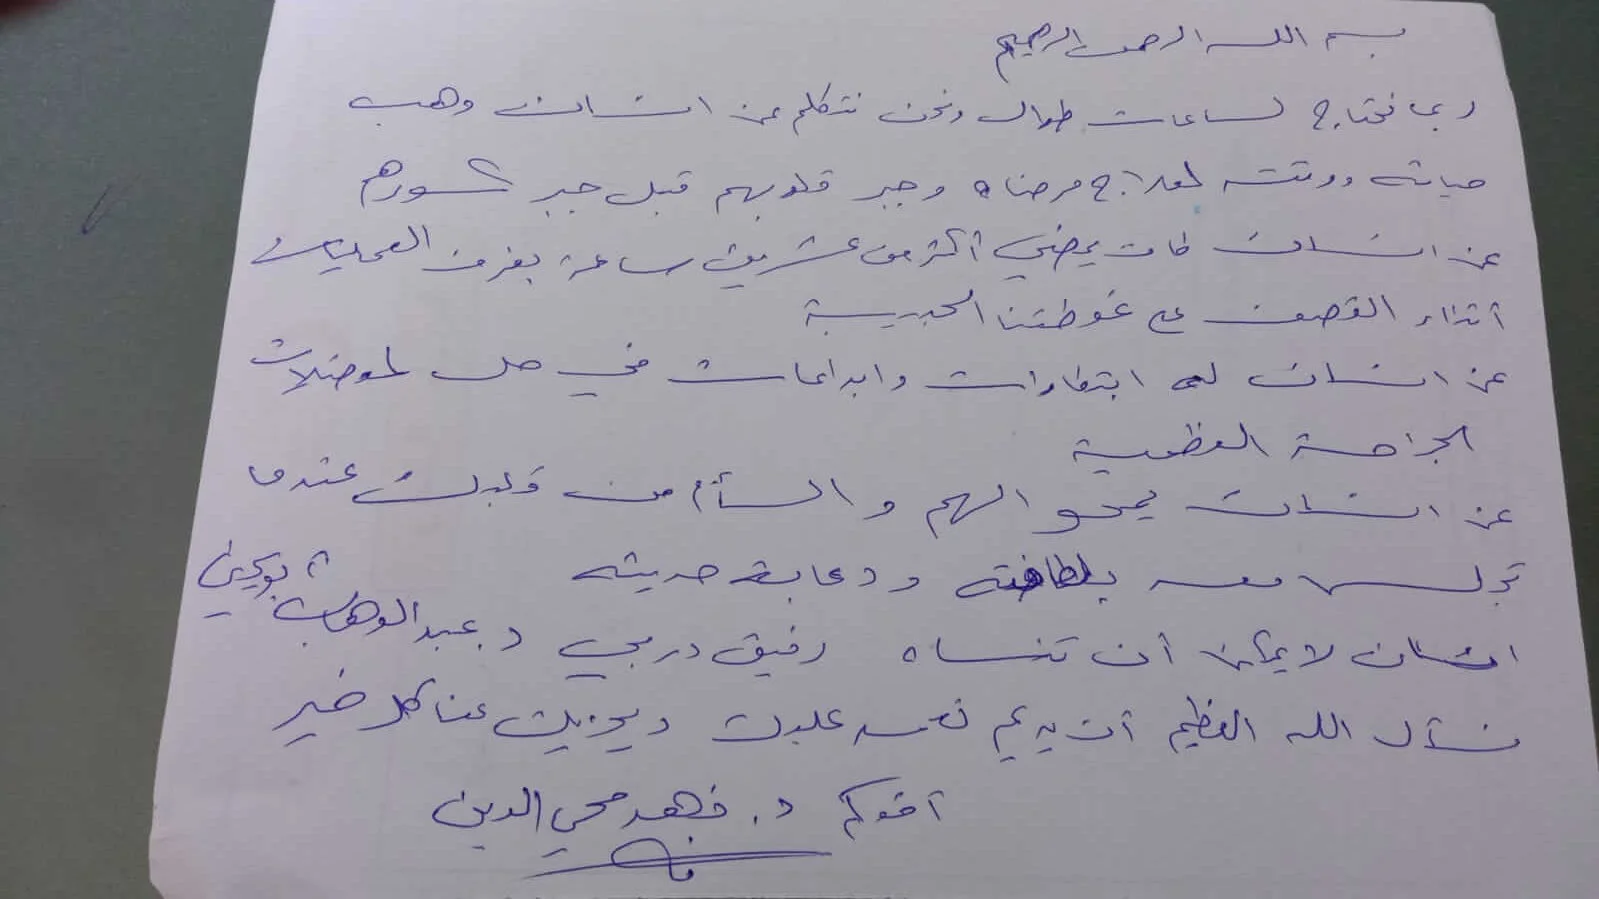 بسم الله الرحمن الرحيم
ربما نحتاج لساعات طوال ونحن نتكلم عن انسان وهب
حياته ووقته لعلاج مرضاه وجبر قلوبهم قبل جبر كسورهم
عن انسان كان يمضي أكثر من عشرين ساعة بغرف العمليات
أثناء القصف على غوطتنا الحبيبة
عن انسان له ابتكارات وابداعات في حل المعضلات
الجراحة العظمية
عن انسان يمحو الهم والسأم من قلبك عندما
تجلس معه بلطافته ودعابة حديثه
انسان لا يمكن أن تنساه رفيق دربي د. عبد الوهاب أبو يحيى
نسأل الله العظيم أن يديم نعمه عليك ويجزيك عنا كل خير
أخوكم د. فهد محي الدين